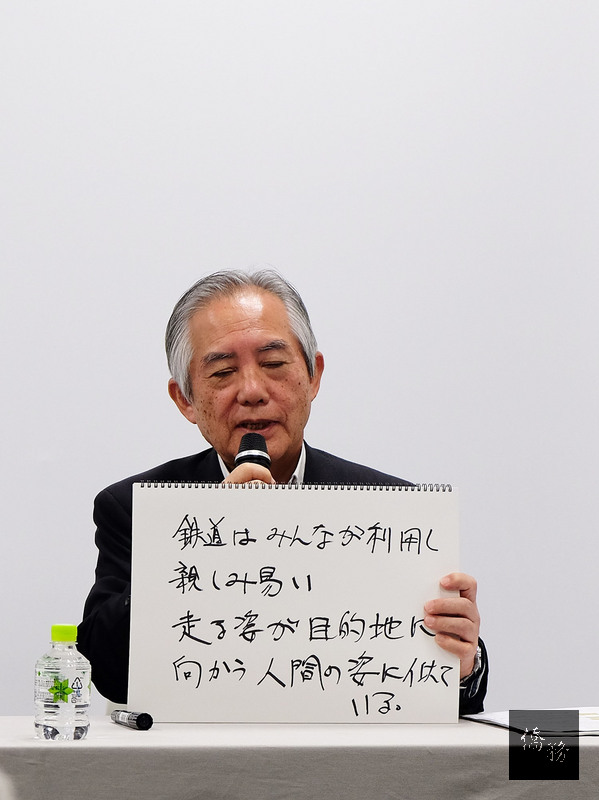 鉄道はみんなが利用し
親しみ易い
走る姿が目的地に
向かう人間の姿に似て
いる。
僑務